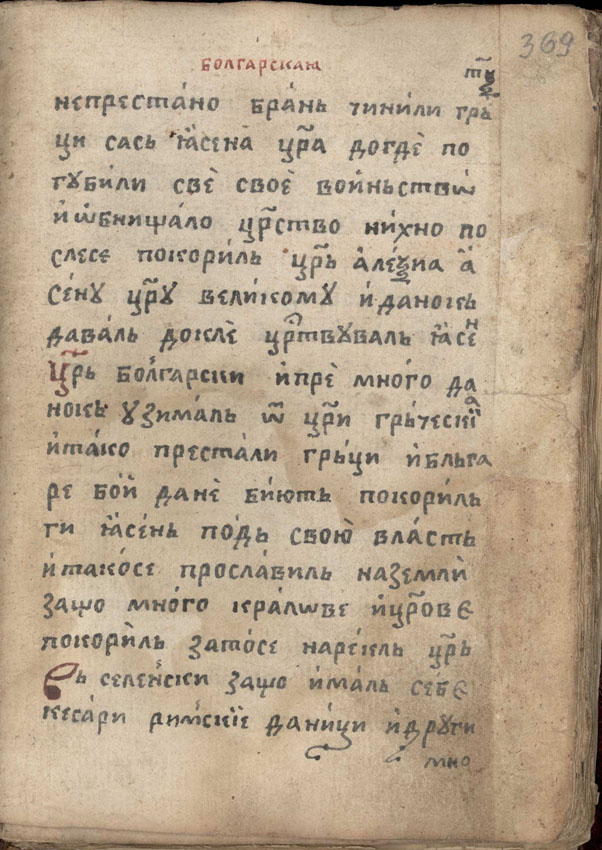 369
БОЛГАРСКАЯ
непреста́но бра́нь чини́ли грь
ци сась ꙗ҆сена̀ цр҃а догдѐ по
гꙋби́ли свѐ своѐ вои́ньствѡ
и҆ ѡ҆бнища́ло цр҃ство ни́хно по
слесе покори́ль цр҃ь
се́нꙋ цр҃ꙋ вели́комꙋ и҆ данокь
дава́ль доклѐ цр҃твꙋ́валь ꙗ҆сен
Цр҃ь болгарски и҆ прѐ мно́го да
нокь ꙋзима́ль ѿ цр҃и гръ́ческїꙗ
и҆ та́ко преста́ли гръ́ци и҆ бльга
ре бо́й данѐ бию́ть покори́ль
ги ꙗ҆се́нь по́дь свою̀ вла́сть
и҆ тако́се просла́виль на земли̇
защо мно́го кра́лѡве и҆ цр҃ове
покори́ль зато́се наре́кль цр҃ь
Вь селе́нски защо и҆ма́ль себе
кеса́ри ри́мскїе да́ници и҆ дрꙋги
мно